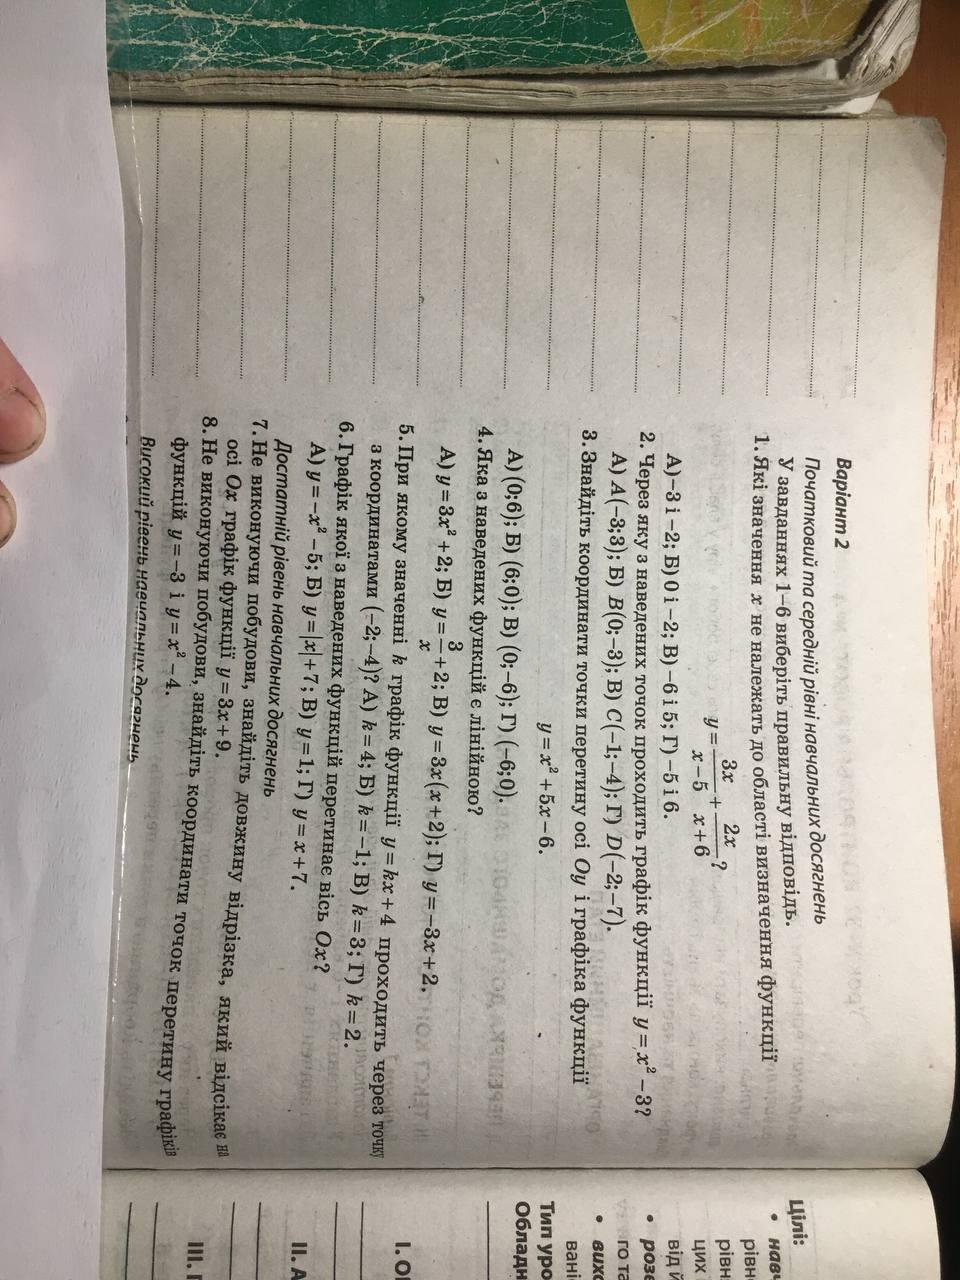 Варіант 2
Початковий та середній рівні навчальних досягнень
У завданнях 1–6 виберіть правильну відповідь.
1. Які значення x не належать до області визначення функції
y = 3x/(x−5) + 2x/(x+6)?
А) −3 і −2; Б) 0 і −2; В) −6 і 5; Г) −5 і 6.
2. Через яку з наведених точок проходить графік функції y = x² −3?
А) A(−3;3); Б) B(0;−3); В) C(−1;−4); Г) D(−2;−7).
3. Знайдіть координати точки перетину осі Oy і графіка функції
y = x² +5x −6.
А) (0;6); Б) (6;0); В) (0;−6); Г) (−6;0).
4. Яка з наведених функцій є лінійною?
А) y = 3x² +2; Б) y = 3/x +2; В) y = 3x(x+2); Г) y = −3x +2.
5. При якому значенні k графік функції y = kx + 4 проходить через точку
з координатами (−2;−4)? А) k = 4; Б) k = −1; В) k = 3; Г) k = 2.
6. Графік якої з наведених функцій перетинає вісь Ox?
А) y = −x² − 5; Б) y = |x| + 7; В) y = 1; Г) y = x + 7.
Достатній рівень навчальних досягнень
7. Не виконуючи побудови, знайдіть довжину відрізка, який відсікає на
осі Ox графік функції y = 3x + 9.
8. Не виконуючи побудови, знайдіть координати точок перетину графіків
функцій y = −3 і y = x² − 4.
Високий рівень навчальних досягнень
Цілі:
• навч
рівн
рівн
цих
від й
• розв
го та
• вихо
вані
Тип уро
Обладн
I. О
II. А
III.